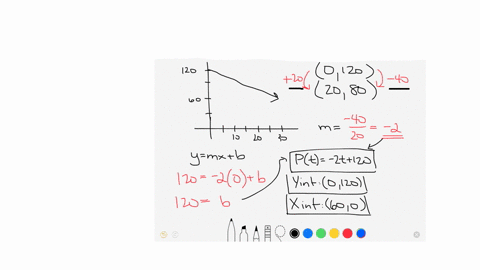 120
60
10 20 30
+20 (0,120) -40
(20,80)
m = -40/20 = -2
y=mx+b
120 = -2(0)+b
120 = b
P(t) = -2t+120
Yint: (0,120)
Xint: (60,0)